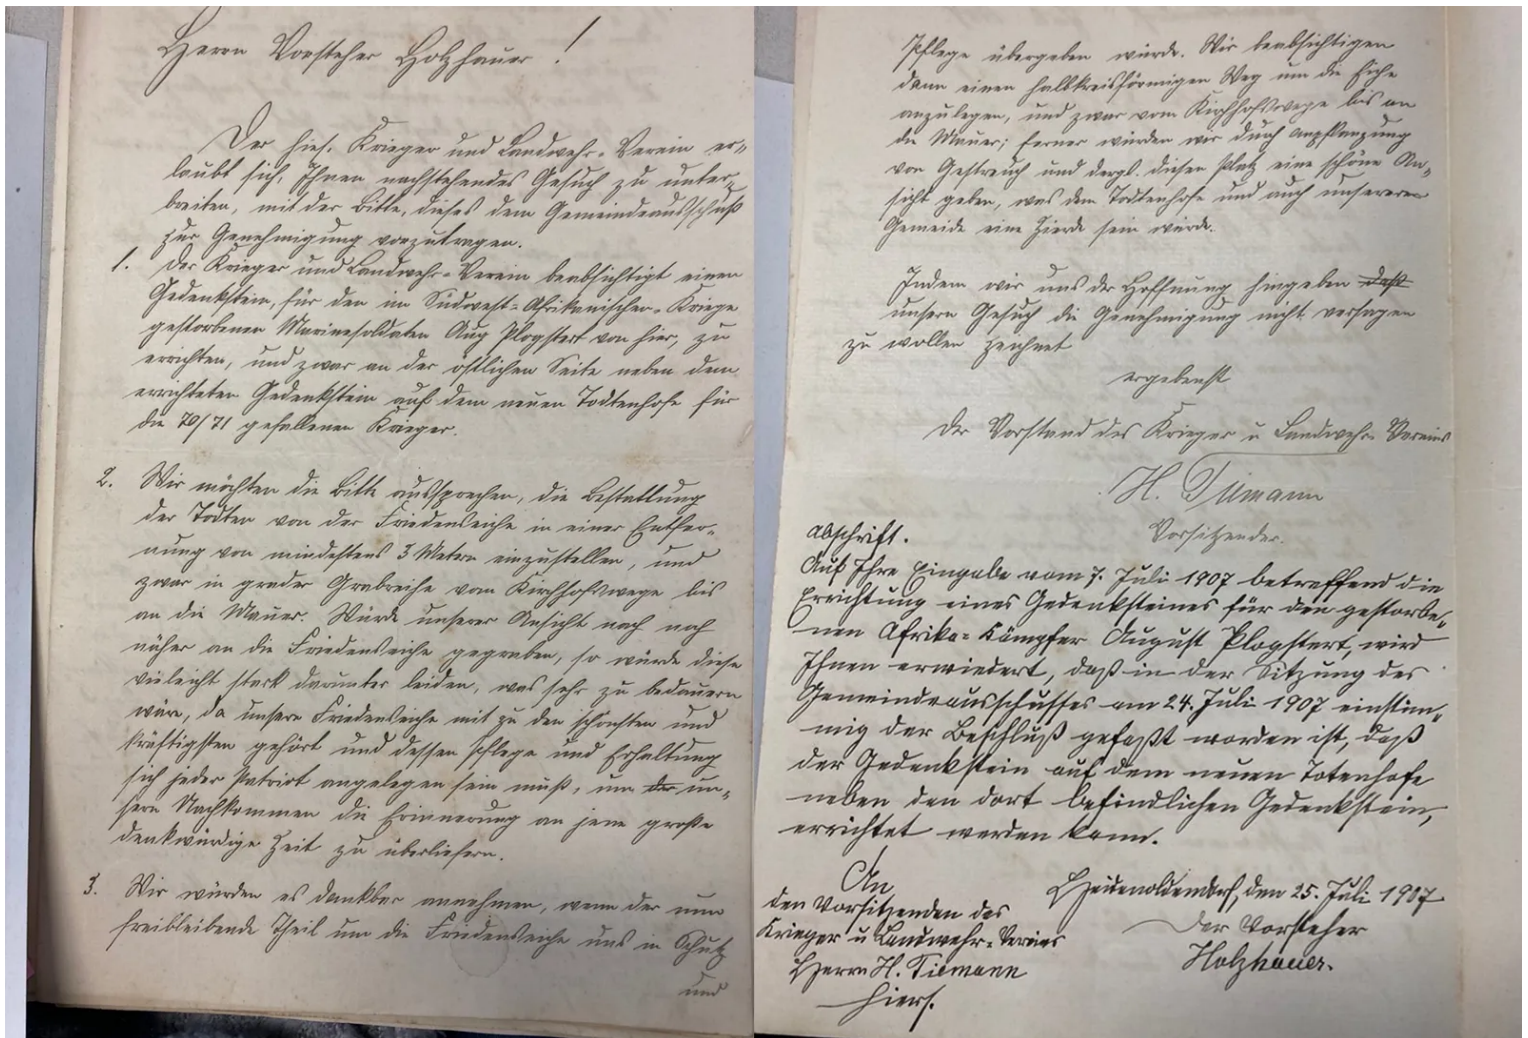 Herrn Vorsteher Holzhauer!
Der hies. Krieger und Landwehr-Verein er-
laubt sich, Ihnen nachstehendes Gesuch zu unter-
breiten, mit der Bitte, dieses dem Gemeindeausschuß
zur Genehmigung vorzutragen.
1. Der Krieger und Landwehr-Verein beabsichtigt einen
Gedenkstein, für den im Südwest-Afrikanischen-Kriege
gestorbenen Marinesoldaten Aug Plogstert von hier, zu
errichten, und zwar an der östlichen Seite neben dem
errichteten Gedenkstein auf dem neuen Todtenhofe für
die 70/71 gefallenen Krieger.
2. Wir möchten die Bitte aussprechen, die Bestattung
der Todten von der Friedenseiche in einer Entfer-
nung von mindestens 3 Metern einzustellen, und
zwar in grader Grabreihe vom Kirchhofswege bis
an die Mauer. Würde unserer Ansicht nach noch
näher an die Friedenseiche gegraben, so würde diese
vieleicht stark darunter leiden, was sehr zu bedauern
wäre, da unsere Friedenseiche mit zu den schönsten und
kräftigsten gehört und dessen Pflege und Erhaltung
sich jeder Patriot angelegen sein muß, um der un-
sern Nachkommen die Erinnerung an jene große
denkwürdige Zeit zu überliefern.
3. Wir würden es dankbar annehmen, wenn der nun
freibleibende Theil um die Friedenseiche uns in Schutz
und
Pflege übergeben würde. Wir beabsichtigen
dann einen halbkreisförmigen Weg um die Eiche
anzulegen, und zwar vom Kirchhofswege bis an
die Mauer; ferner würden wir durch Anpflanzung
von Gesträuch und dergl. diesen Platz eine schöne An-
sicht geben, was dem Todtenhofe und auch unsereren
Gemeide eine Zierde sein würde.
Indem wir uns der Hoffnung hingeben daß
unsern Gesuch die Genehmigung nicht versagen
zu wollen zeichnet
ergebenst
Der Vorstand des Krieger u Landwehr-Vereins
H. Tiemann
Vorsitzender.
Abschrift.
Auf Ihre Eingabe vom 7. Juli 1907 betreffend die
Errichtung eines Gedenksteines für den gestorbe-
nen Afrika-Kämpfer August Plogstert, wird
Ihnen erwiedert, daß in der Sitzung des
Gemeindeausschusses am 24. Juli 1907 einstim-
mig der Beschluß gefaßt worden ist, daß
der Gedenkstein auf dem neuen Totenhofe
neben den dort befindlichen Gedenkstein,
errichtet werden kann.
Heidenoldendorf, den 25. Juli 1907
Der Vorsteher
Holzhauer.
An
den Vorsitzenden des
Krieger u Landwehr-Vereins
Herrn H. Tiemann
hiers.